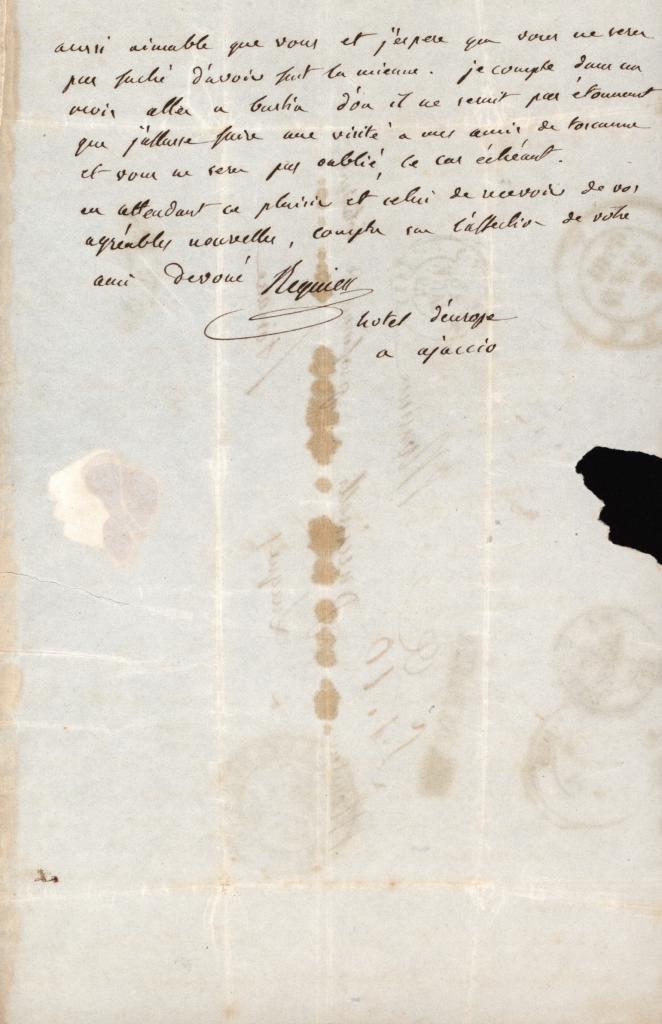 aussi aimable que vous et j'espere que vous ne serez
pas faché d'avoir fait la mienne. je compte dans un
mois aller a bastia d'ou il ne serait pas étonnant
que j'allasse faire une visite a mes amis de toscanne
et vous ne serez pas oublié, ce cas échéant.
en attendant ce plaisir et celui de recevoir de vos
agréables nouvelles, comptez sur l'affection de votre
ami devoué Requien
hotel d'europe
a ajaccio